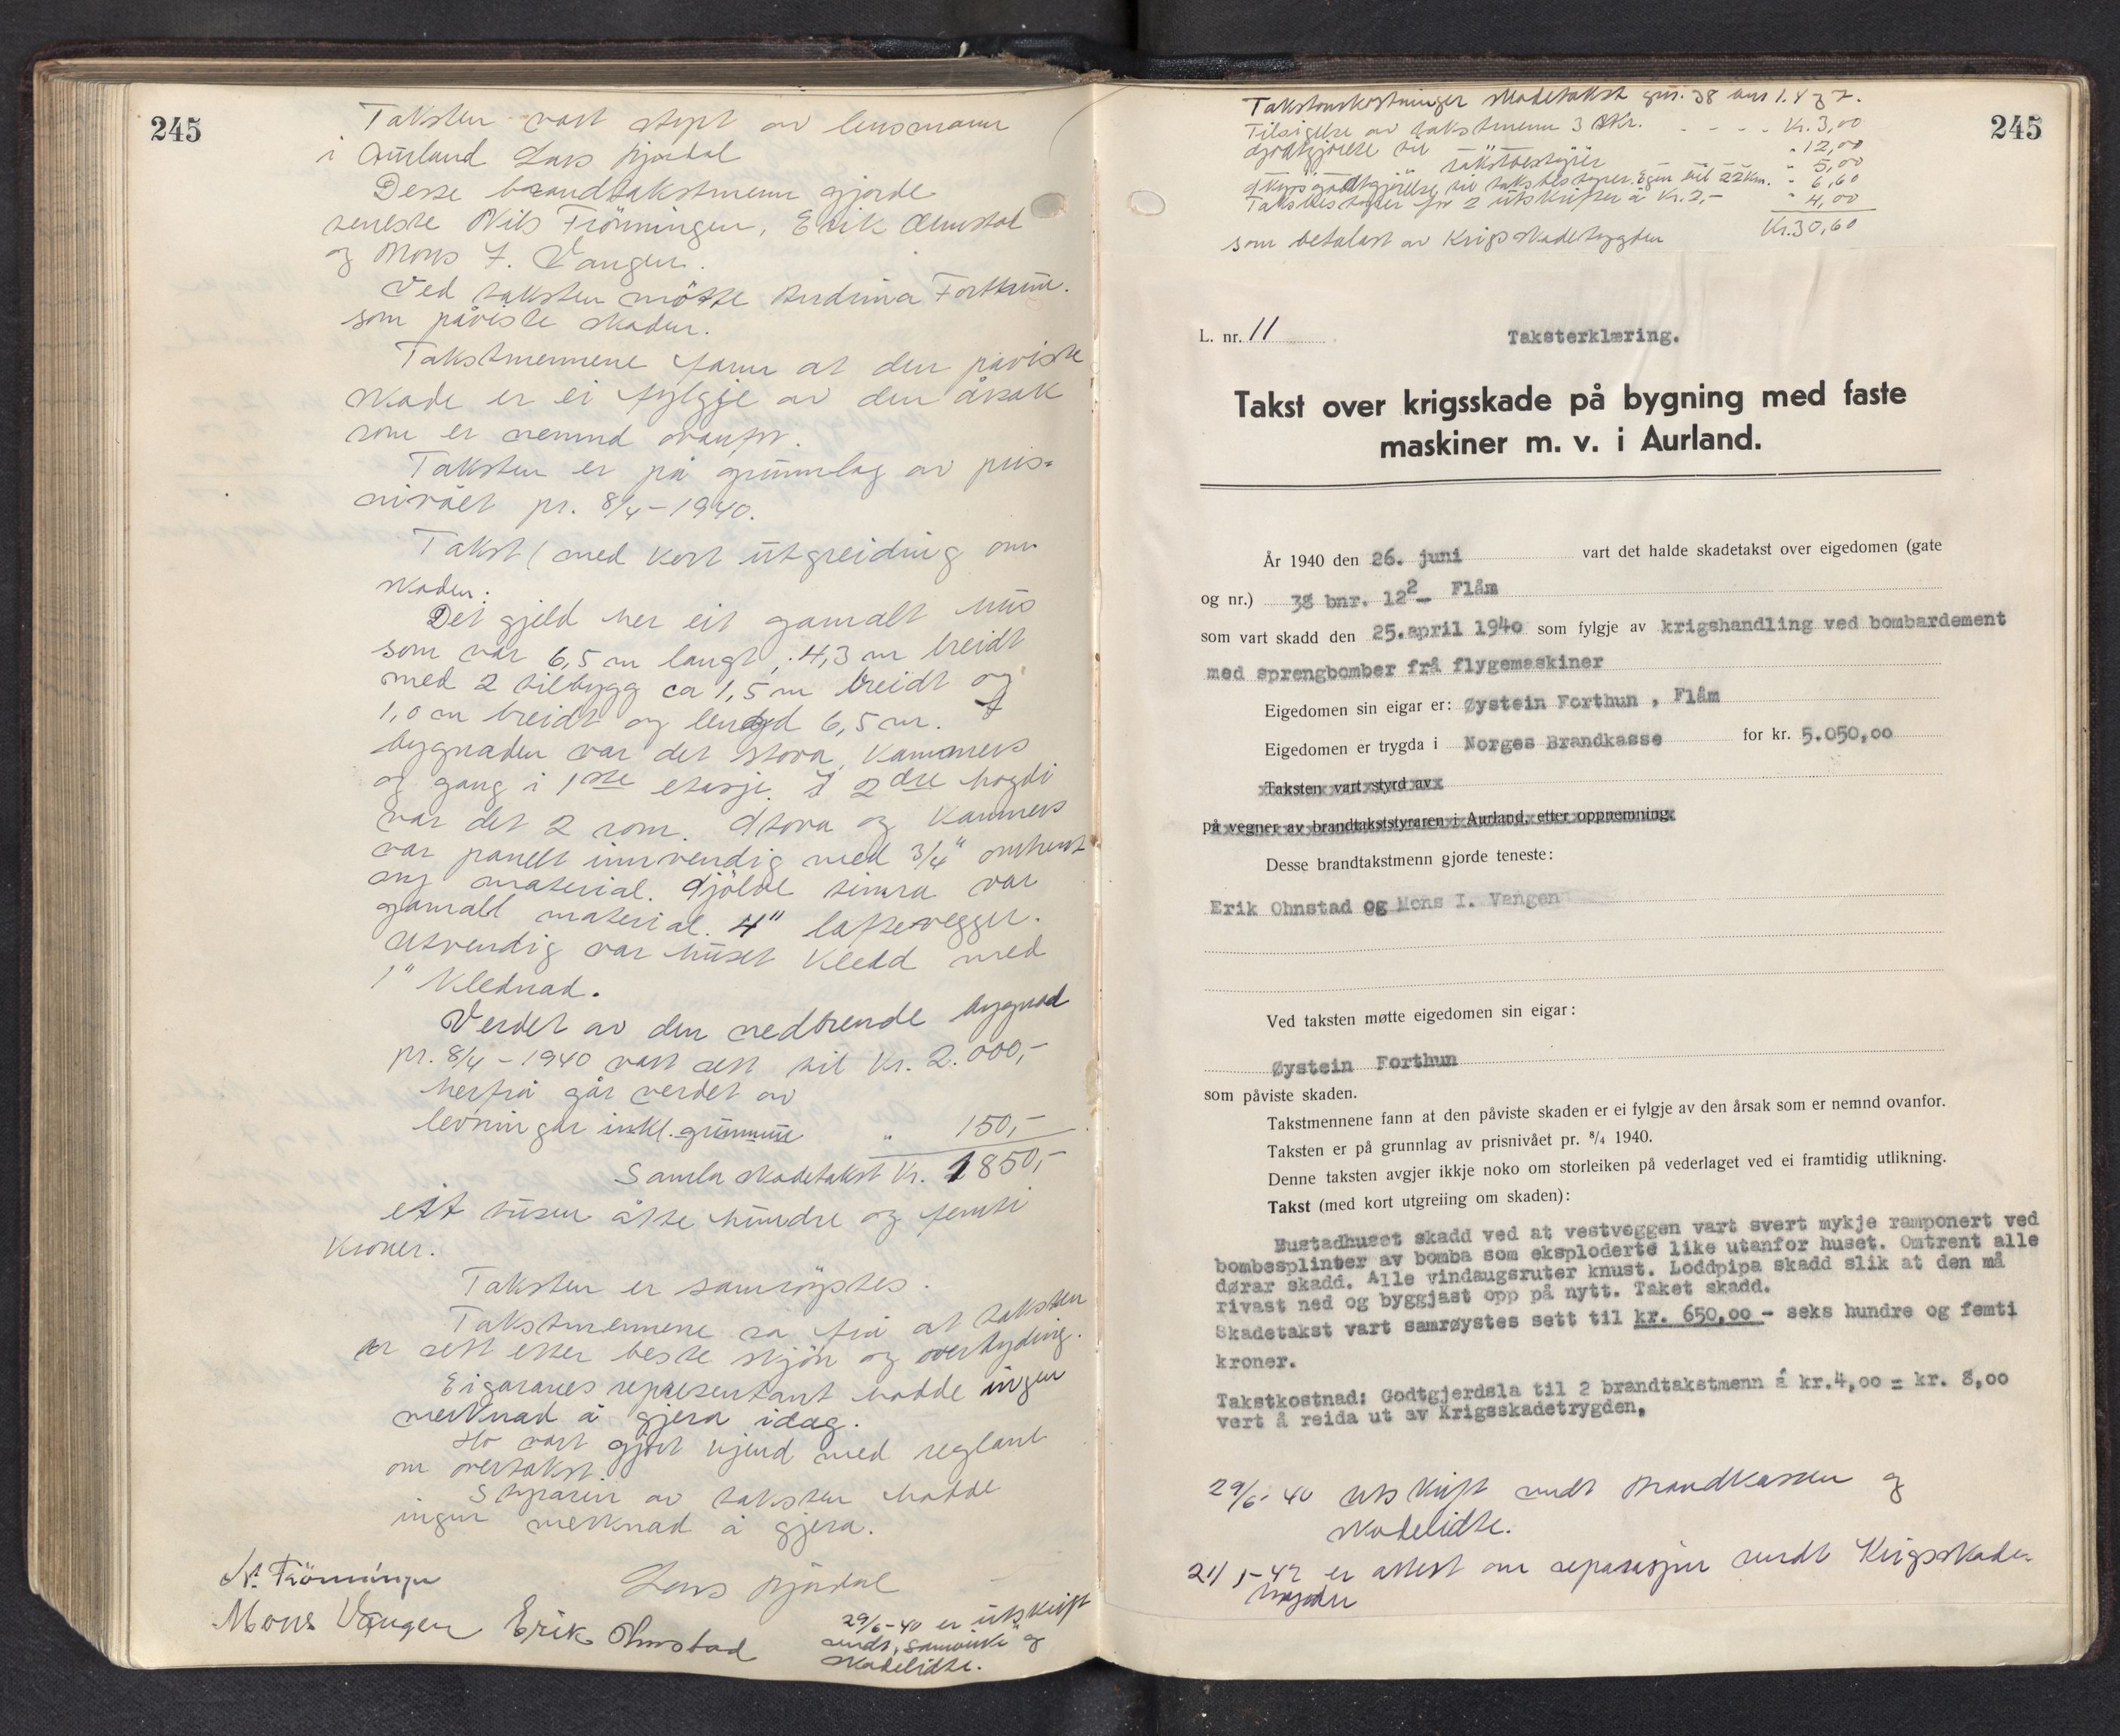 245
Taksten vart styrt av lensmann
i Aurland Lars Bjørdal
Desse brandtakstmenn gjorde
teneste Nils Frönningen, Erik Ohnstad
og Mons I. Vangen.
Ved taksten mötte Andrina Forthun.
som påviste skaden.
Takstmennene fann at den påviste
skade er ei fylgje av den årsak
som er nemnd ovanfor.
Taksten er på grunnlag av pris=
nivået pr. 8/4 - 1940.
Takst (med kort utgreiding om
skaden:
Det gjeld her eit gamalt hus
som var 6,5 m langt, 4,3 m breidt
med 2 tilbygg ca 1,5 m breidt og
1,0 m breidt og lengd 6,5 m. I
bygnaden var det stova, kammers
og gang i 1ste etasje. I 2dre høgdi
var det 2 rom. Stova og kammers
var panelt innvendig med 3/4" omhent
ny material. Sjölve timra var
gamalt material. 4" laftevegger.
Utvendig var huset kledd med
1" klednad.
Verdet av den nedbrende bygnad
pr. 8/4 - 1940 vart sett til kr. 2.000,-
herfrå går verdet av
levningar inkl. grunnmur " 150,-
Samla skadetakst kr. 1850,-
eit tusen åtte hundre og femti
kroner.
Taksten er samröystes.
Takstmennene sa frå at taksten
er sett etter beste skjön og overtyding.
Eigaranes representant hadde ingen
merknad å gjera idag.
Ho vart gjort kjend med reglane
om overtakst.
Styraren av taksten hadde
ingen merknad å gjera.
N. Frönningen Lars Bjørdal
Mons Vangen Erik Ohnstad
29/6-40 er utskrift
sendt "Samvirke" og
skadelidte.
245
Takstomkostninger skadetakst gnr. 38 bnr 1.4 y 7.
Tilsigelse av takstmenn 3 Kr. - - - - Kr. 3,00
Godtgjörelse til " " 12,00
" " takstbestyrer " 5,00
Skyssgodtgjörelse til takstbestyrer. Egen bil 22 km. " 6,60
Takstbestyrer for 2 utskrifter à Kr. 2,- " 4,00
Kr. 30,60
som betalast av Krigsskadetrygden
L. nr. 11 Taksterklæring.
Takst over krigsskade på bygning med faste
maskiner m. v. i Aurland.
År 1940 den 26. juni vart det halde skadetakst over eigedomen (gate
og nr.) 38 bnr. 12 2 Flåm
som vart skadd den 25.april 1940 som fylgje av krigshandling ved bombardement
med sprengbomber frå flygemaskiner
Eigedomen sin eigar er: Øystein Forthun , Flåm
Eigedomen er trygda i Norges Brandkasse for kr. 5.050,00
Taksten vart styrd av
på vegner av brandtakststyraren i Aurland, etter oppnemning
Desse brandtakstmenn gjorde teneste:
Erik Ohnstad og Mons I. Vangen
Ved taksten møtte eigedomen sin eigar:
Øystein Forthun
som påviste skaden.
Takstmennene fann at den påviste skaden er ei fylgje av den årsak som er nemnd ovanfor.
Taksten er på grunnlag av prisnivået pr. 8/4 1940.
Denne taksten avgjer ikkje noko om storleiken på vederlaget ved ei framtidig utlikning.
Takst (med kort utgreiing om skaden):
Bustadhuset skadd ved at vestveggen vart svert mykje ramponert ved
bombesplinter av bomba som eksploderte like utanfor huset. Omtrent alle
dørar skadd. Alle vindaugsruter knust. Loddpipa skadd slik at den må
rivast ned og byggjast opp på nytt. Taket skadd.
Skadetakst vart samrøystes sett til kr. 650,00 - seks hundre og femti
kroner.
Takstkostnad: Godtgjerdsla til 2 brandtakstmenn á kr.4,00 = kr. 8,00
vert å reida ut av Krigsskadetrygden.
29/6-40 utskrift sendt Brandkassen og
skadelidte.
21/1-42 er attest om reparasjon sendt Krigsskade-
trygden